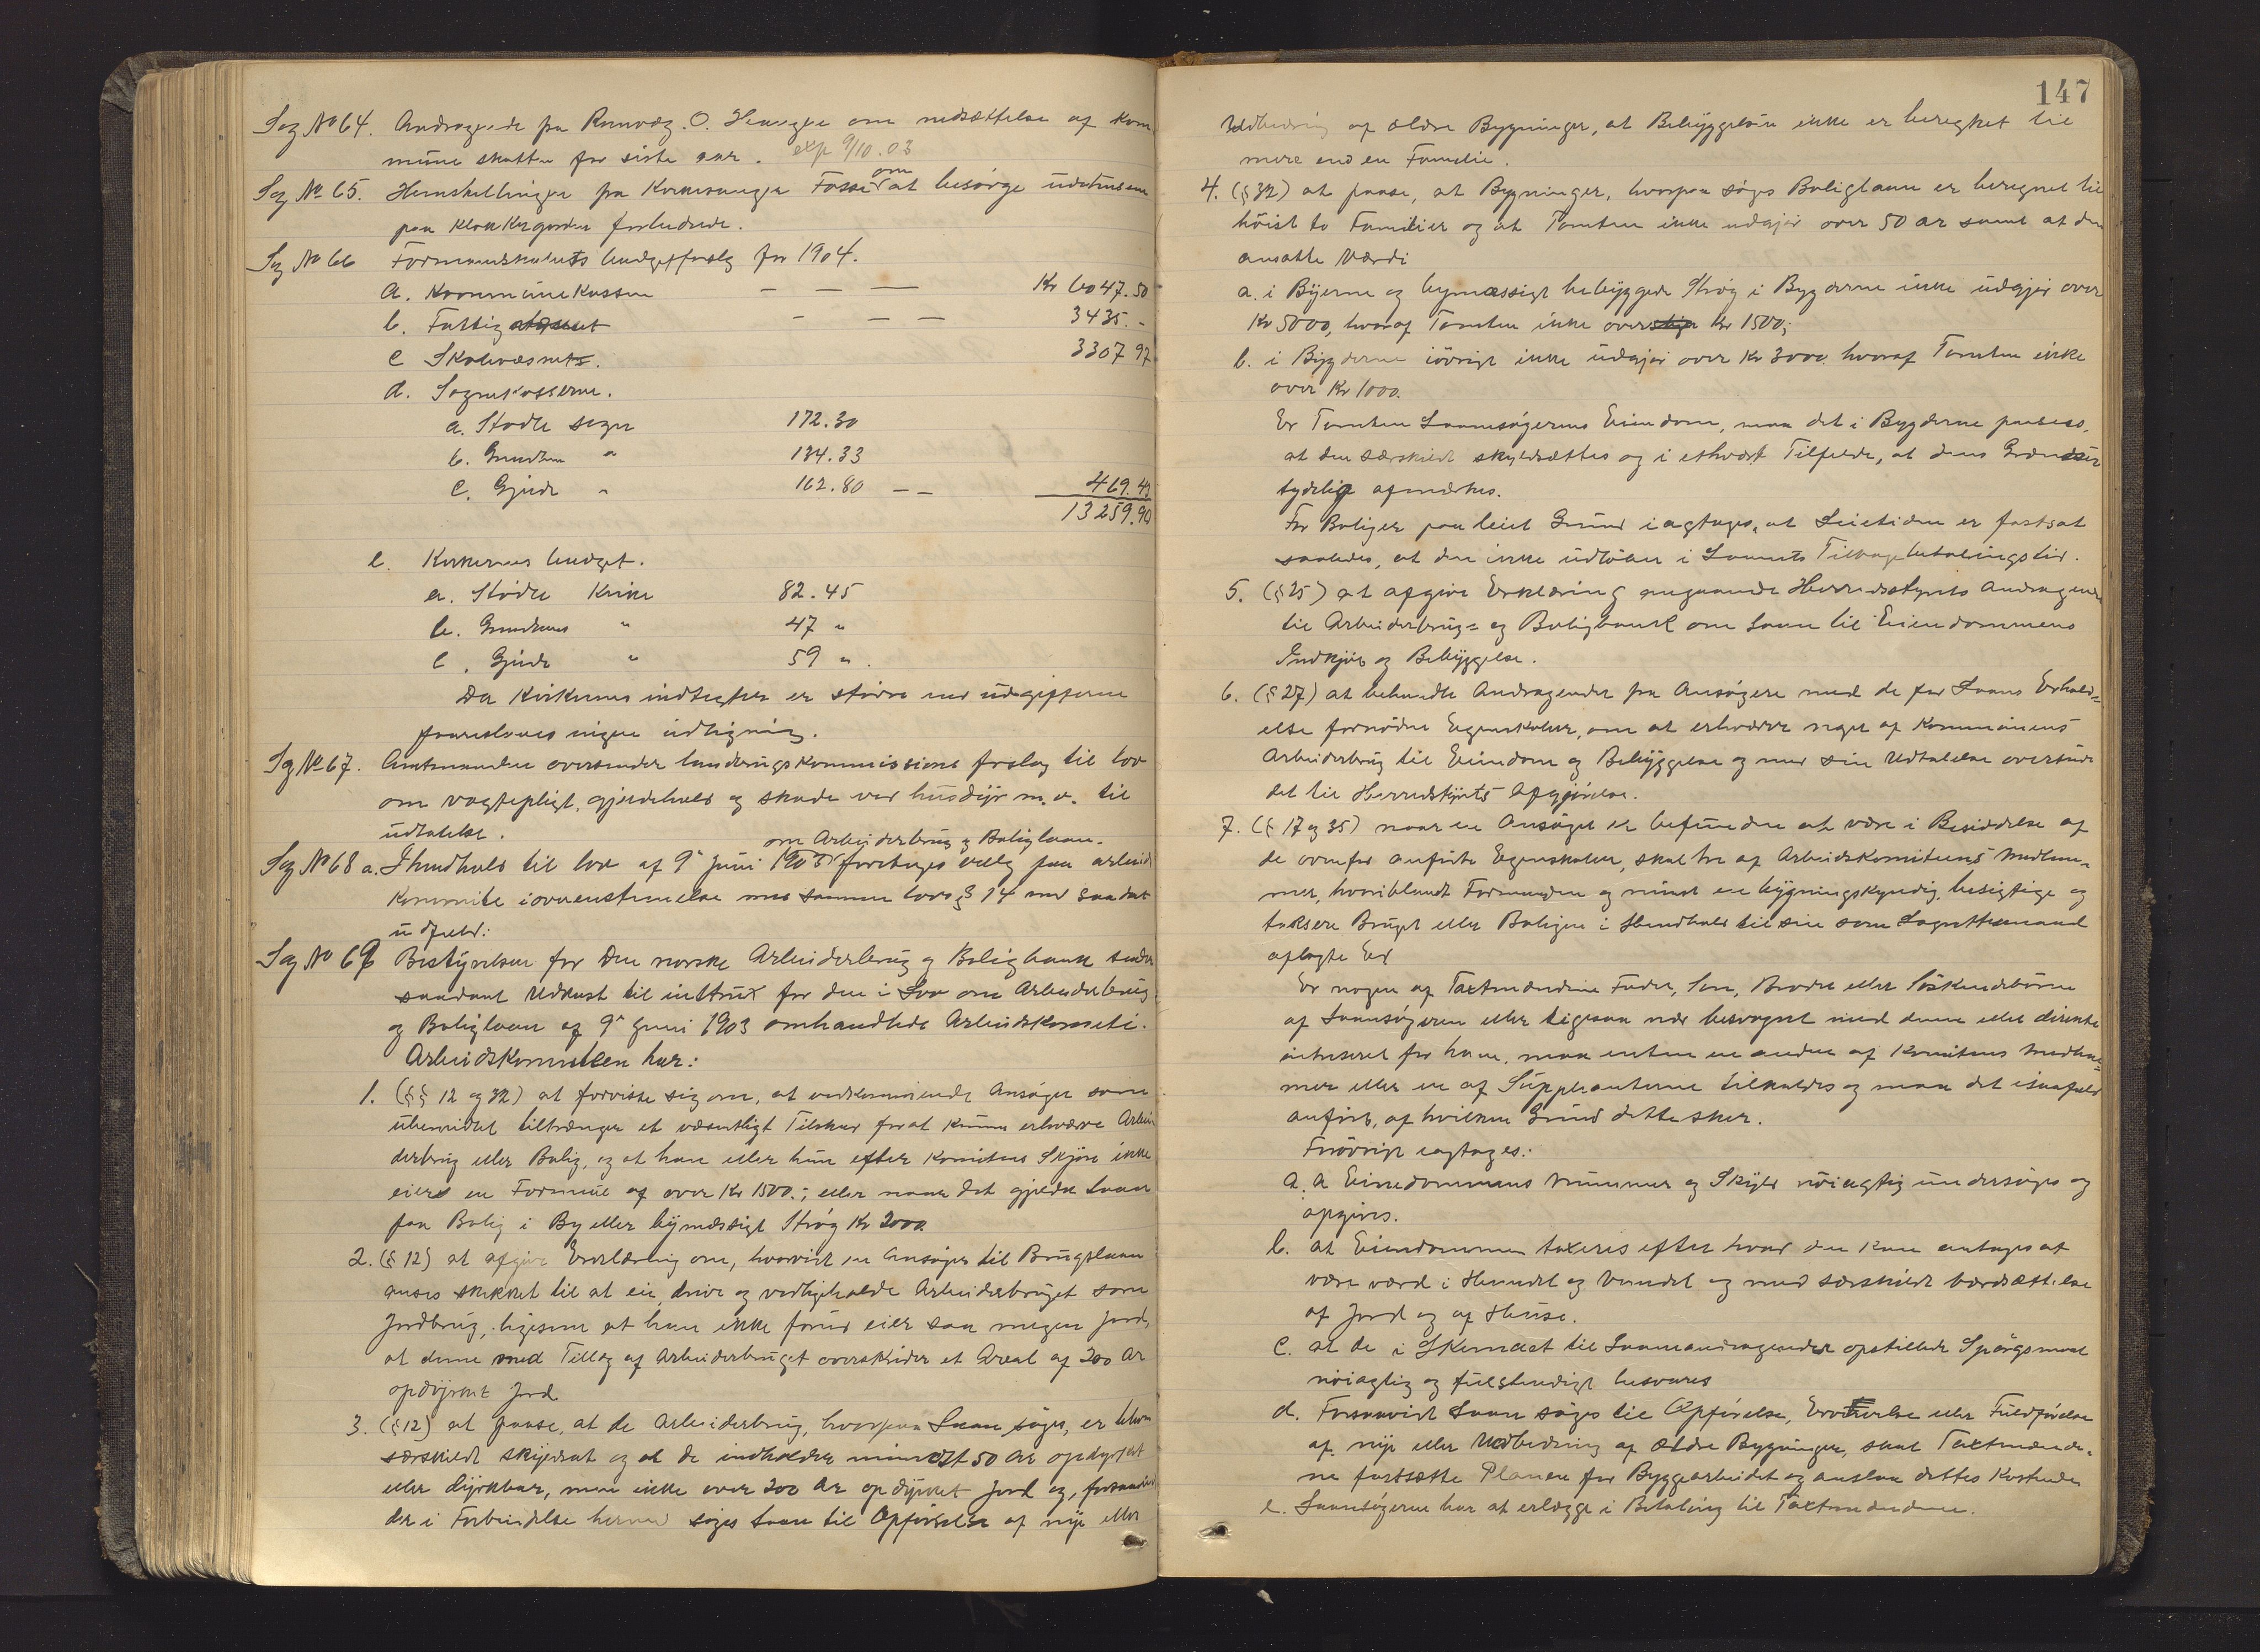 Sag No 64. Andragende fra Rannveg. O. Haugen om nedsættelse af kom
mune skatten for siste aar. exp 9/10.03
Sag No 65. Henstillingen fra Kirkesanger Fosse om at besørge udetusene
paa klokkergarden forbedrede.
Sag No 66 Formannskabets budgetforslag for 1904.
a. Kommunekassen — — — Kr 6047.50
b. Fattig — — — 3435.-
c Skolevæsnets. 3307 97
d. Sognekasserne.
a. Stodle sogn 172.30
b. Grindhm " 134.33
c. Gjerde " 162.80 — — 469.43
13259.90
e. Kirkernes budget.
a. Stødle Kirke 82.45
b. Grindems " 47 "
c. Gjerde " 59 ".
Da Kirkernes indtægter er større end udgifterne
foureslaaes ingen udligning.
Sag No 67. Amtmanden oversender landbrugskommissions forslag til lov
om vogtepligt, gjerdehold og skade ved husdyr m.v. til
udtalelse.
om Arbeiderbrug og Boliglaan.
Sag No 68 a. I henhold til lov af 9de juni 1903 foretages valg paa arbeids
Kommite i overenstemmelse med samme lovs § 14 med saadat
udfald:
Sag No 69 Bestyrelsen for Den norske Arbeiderbrug og Boligbank sender
saadant Udkast til instrux for den i Lov om Arbeiderbrug
og Boliglaan af 9de Juni 1903 omhandlede Arbeidskomite.
Arbeidskomiteen har:
1. (§§ 12 og 32) at forvisse sig om, at vedkommende Ansøger som
ubemidlet tiltrænger et væsentligt Tilskud for at kunne erhverve Arbei
derbrug eller Bolig, og at han eller hun efter Komiteens Skjøn ikke
eier en Formue af over Kr 1500.; eller naar det gjelder Laan
paa Bolig i By eller bymæssigt Strøg Kr 2000.
2. (§ 12) at afgive Erklæring om, hvorvidt en Ansøger til Brugslaan
anses skikket til at eie, drive og vedligeholde Arbeiderbruget som
Jordbrug, ligesom at han ikke forud eier saa megen jord,
at denne med Tillæg af Arbeiderbruget overskrider et Areal af 200 Ar
opdyrket Jord
3. (§ 12) at paase, at de Arbeiderbrug, hvorpaa Laan søges, er bleven
særskildt skyldsat og at de indholder mindst 50 Ar opdyrket
eller dyrkbar, men ikke over 200 Ar opdyrket Jord og, forsaavidt
der i Forbindelse hermed søges Laan til Opførelse af nye eller
147
Udbedring af ældre Bygninger, at Bebyggelsen ikke er beregnet til
mere end en Familie.
4. (§ 32) at paase, at Bygninger, hvorpaa søges Boliglaan er beregnet til
høist to Familier og at Tomten ikke udgjør over 50 ar samt at den
ansatte Værdi
a. i Byerne og bymæssigt bebyggede Strøg i Bygderne ikke udgjør over
Kr 5000, hvoraf Tomten ikke over Kr 1500;
b. i Bygderne iøvrigt ikke udgjør over Kr 3000. hvoraf Tomten ikke
over Kr 1000.
Er Tomten Laansøgerens Eiendom, maa det i Bygderne paasees,
at den særskildt skyldsættes og i ethvert Tilfelde, at dens Grændser
tydelig afmærkes.
For Boliger paa leiet Grund iagtages, at Leietiden er fastsat
saaledes, at den ikke udløber i Laanets Tilbagebetalingstid.
5. (§ 25) at afgive Erklæring angaaende Herredsstyrets Andragende
til Arbeiderbrug= og Boligbank om Laan til Eiendommens
Indkjøb og Bebyggelse.
6. (§ 27) at behandle Andragender fra Ansøgere med de for Laans Erhold=
else fornødne Egenskaber, om at erhverve noget af Kommunens
Arbeiderbrug til Eiendom og Bebyggelse og med sin Udtalelse oversende
det til Herredstyrets Afgjørelse.
7. (§ 17 og 35) naar en Ansøger er befunden at være i Besiddelse af
de ovenfor anførte Egenskaber, skal tre af Arbeidskomiteens Medlem=
mer, hvoriblandt Formanden og mindst en bygningskyndig, besigtige og
taksere Bruget eller Boligen i Henhold til sin som Lagrettemand
aflagte Ed
Er nogen af Taxtmændene Fader, Søn, Broder eller Søskendebørn
af Laansøgeren eller ligesaa nær besvogret med denne eller direkte
interesseret for ham, maa enten en anden af Komiteens Medlem=
mer eller en af Suppleanterne tilkaldes og maa det isaafald
anføres, af hvilken Grund dette sker.
Forøvrigt iagtages:
a. a Eiendommens Nummer og Skyld nøiagtig undersøges og
opgives.
b. at Eiendommen taxeres efter hvad den kan antages at
være værd i Handel og Vandel og med særskildt værdsættelse
af Jord og af Huse.
c. at de i Skemaet til Laaneandragender opstillede Spørgsmaal
nøiagtig og fuldstendigt besvares
d. Forsaavidt Laan søges til Opførelse, Erhvervelse eller Fuldførelse
af nye eller Udbedring af ældre Bygninger, skal Taxtmænde=
ne fastsætte Planen for Byggearbeidet og anslaa dettes Kostende
e. Laansøgerne har at erlægge i Betaling til Taxtmændene.